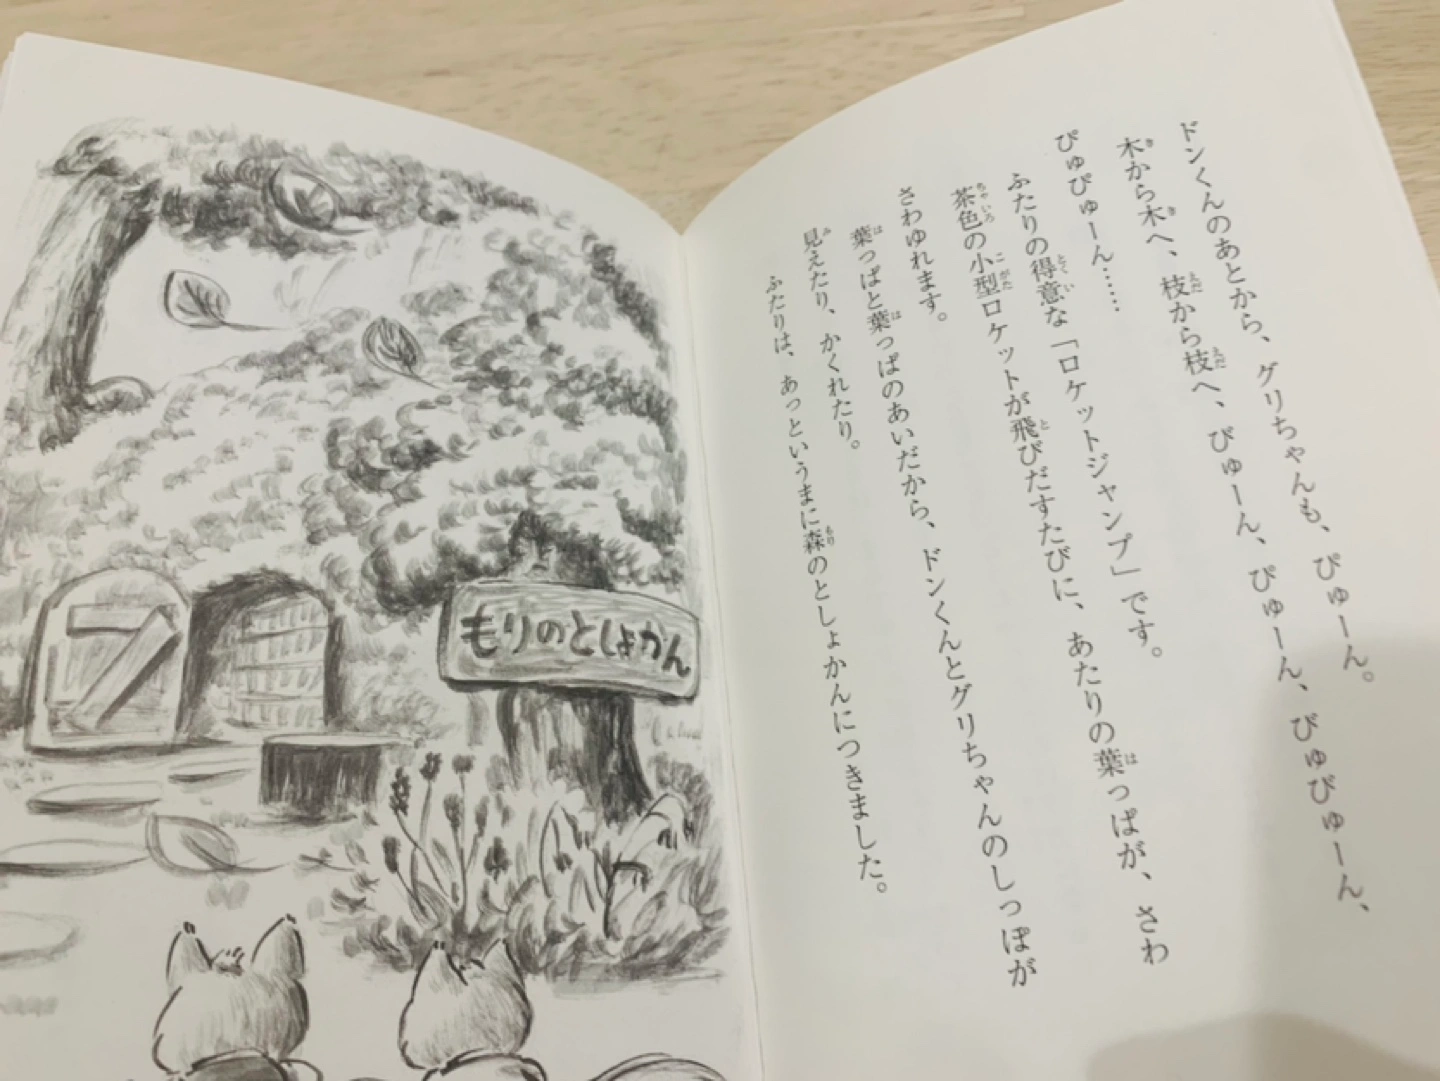 ドンくんのあとから、グリちゃんも、ぴゅーん。
木から木へ、枝から枝へ、びゅーん、ぴゅーん、びゅびゅーん、
ぴゅぴゅーん……
ふたりの得意な「ロケットジャンプ」です。
茶色の小型ロケットが飛びだすたびに、あたりの葉っぱが、さわ
さわゆれます。
葉っぱと葉っぱのあいだから、ドンくんとグリちゃんのしっぽが
見えたり、かくれたり。
ふたりは、あっというまに森のとしょかんにつきました。
もりのとしょかん